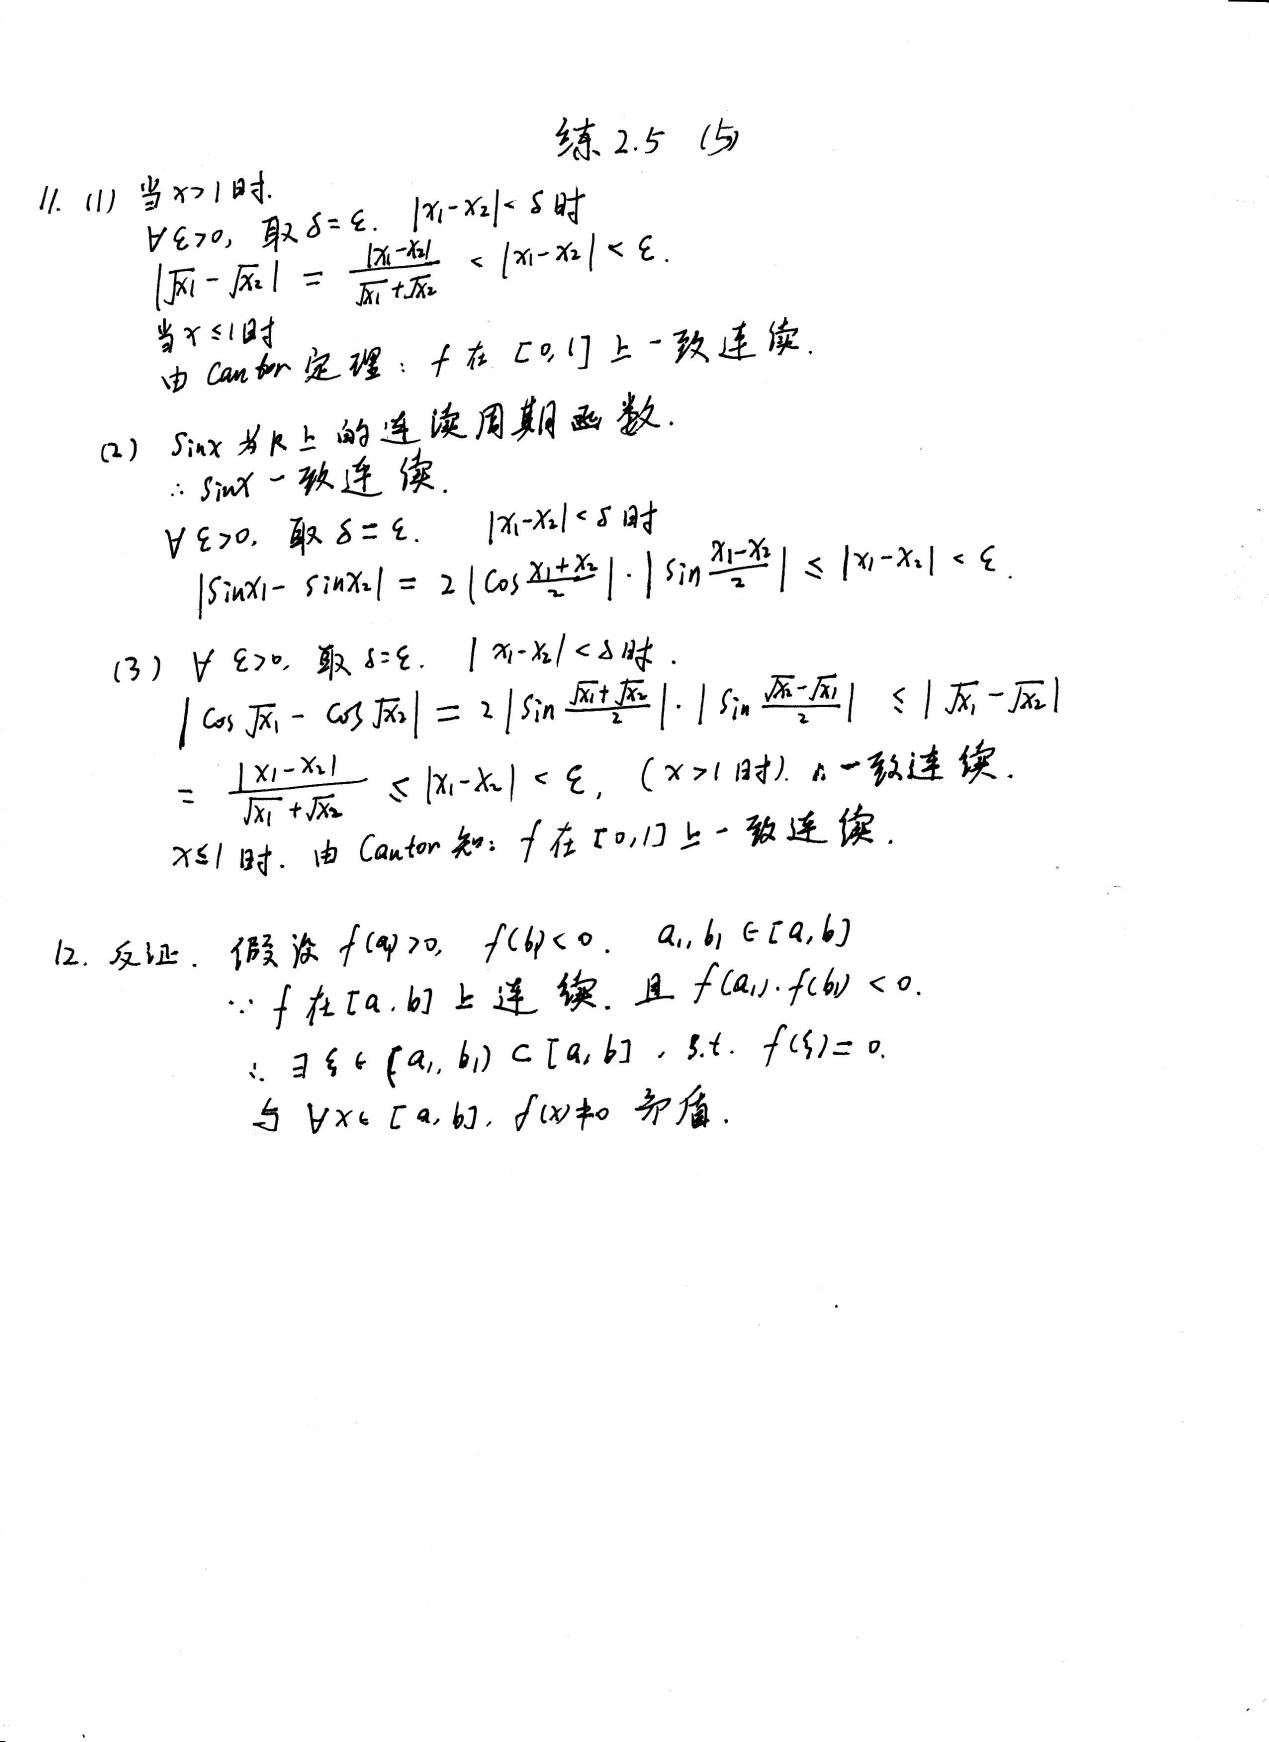 练2.5 (5)
11. (1) 当x>1时.
∀ε>0, 取δ=ε. |x₁-x₂|<δ时
|√x₁-√x₂| = |x₁-x₂|/(√x₁+√x₂) < |x₁-x₂| < ε.
当x≤1时
由Cantor定理: f在[0,1]上一致连续.
(2) sinx为R上的连续周期函数.
∴ sinx一致连续.
∀ε>0, 取δ=ε. |x₁-x₂|<δ时
|sinx₁-sinx₂| = 2|cos (x₁+x₂)/2|·|sin (x₁-x₂)/2| ≤ |x₁-x₂| < ε.
(3) ∀ε>0, 取δ=ε. |x₁-x₂|<δ时.
|cos√x₁ - cos√x₂| = 2|sin (√x₁+√x₂)/2|·|sin (√x₂-√x₁)/2| ≤ |√x₁-√x₂|
= |x₁-x₂|/(√x₁+√x₂) ≤ |x₁-x₂| < ε, (x>1时). ∴一致连续.
x≤1时. 由Cantor知: f在[0,1]上一致连续.
12. 反证. 假设f(a₁)>0, f(b₁)<0. a₁, b₁∈[a,b]
∵ f在[a,b]上连续. 且f(a₁)·f(b₁)<0.
∴ ∃ξ∈(a₁, b₁)⊂[a,b], s.t. f(ξ)=0.
与∀x∈[a,b], f(x)≠0矛盾.